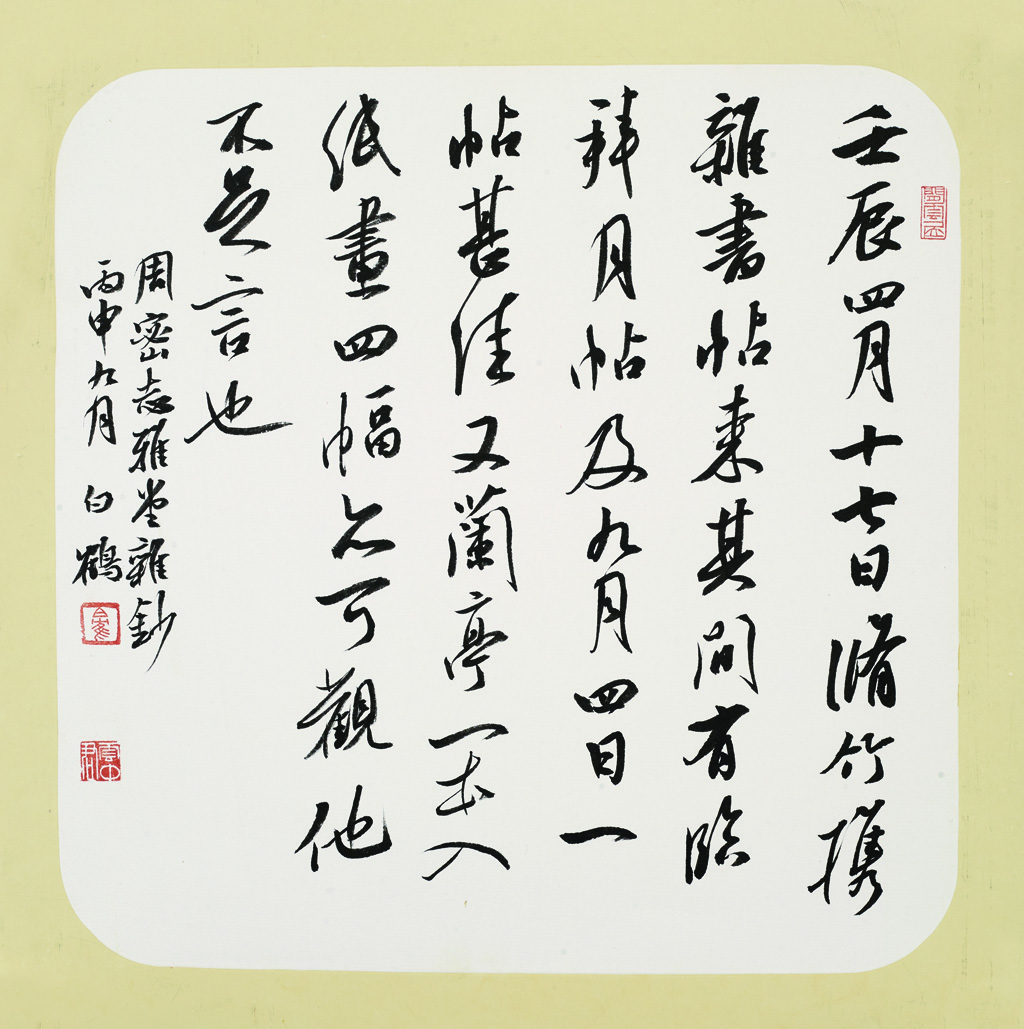 壬辰四月十七日脩竹攜
雜書帖来其间有臨
拜月帖及九月四日一
帖甚佳又蘭亭一本入
纸畫四幅亦可觀他
不足言也
周密志雅堂雜鈔
丙申九月 白鶴